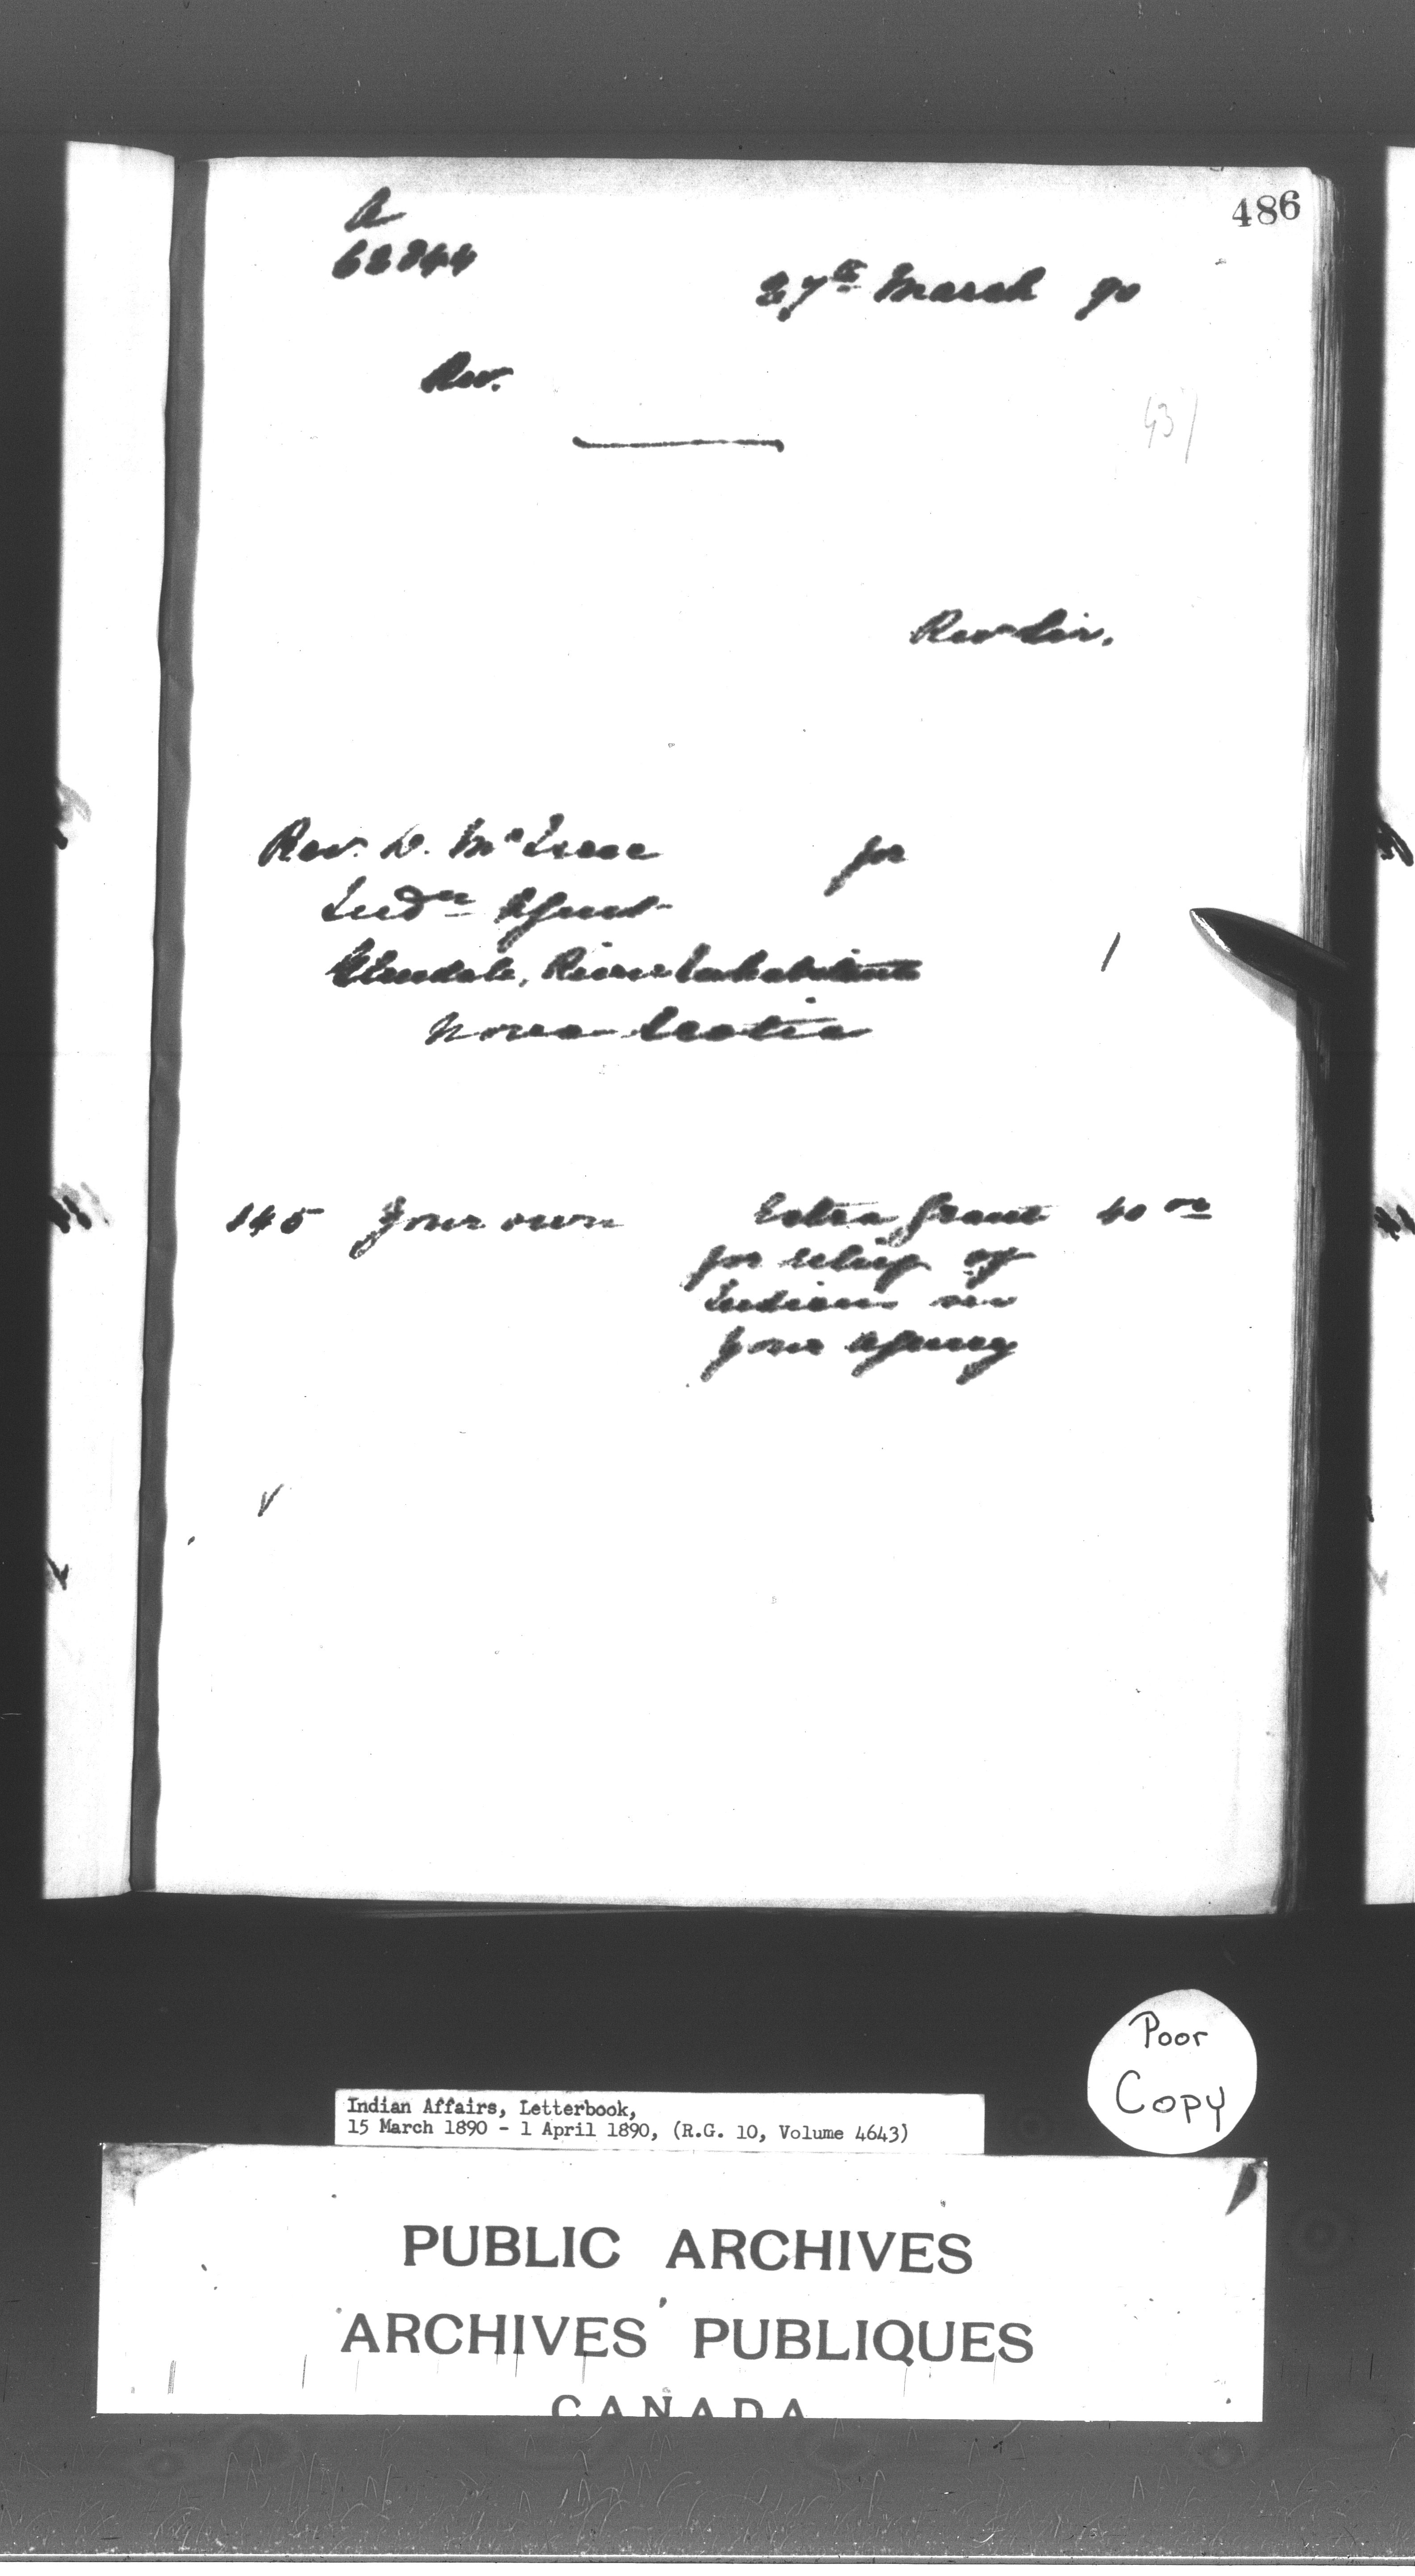 486
A
62844
27th March 90
Rev.
Rev Sir,
Rev. D. McIsaac for
Indn Agent
Glendale, River Inhabitants
Nova Scotia
145 Your own Extra Grant 40 00
for relief of
Indians in
your agency
Poor
Copy
Indian Affairs, Letterbook,
15 March 1890 - 1 April 1890, (R.G. 10, Volume 4643)
PUBLIC ARCHIVES
ARCHIVES PUBLIQUES
CANADA